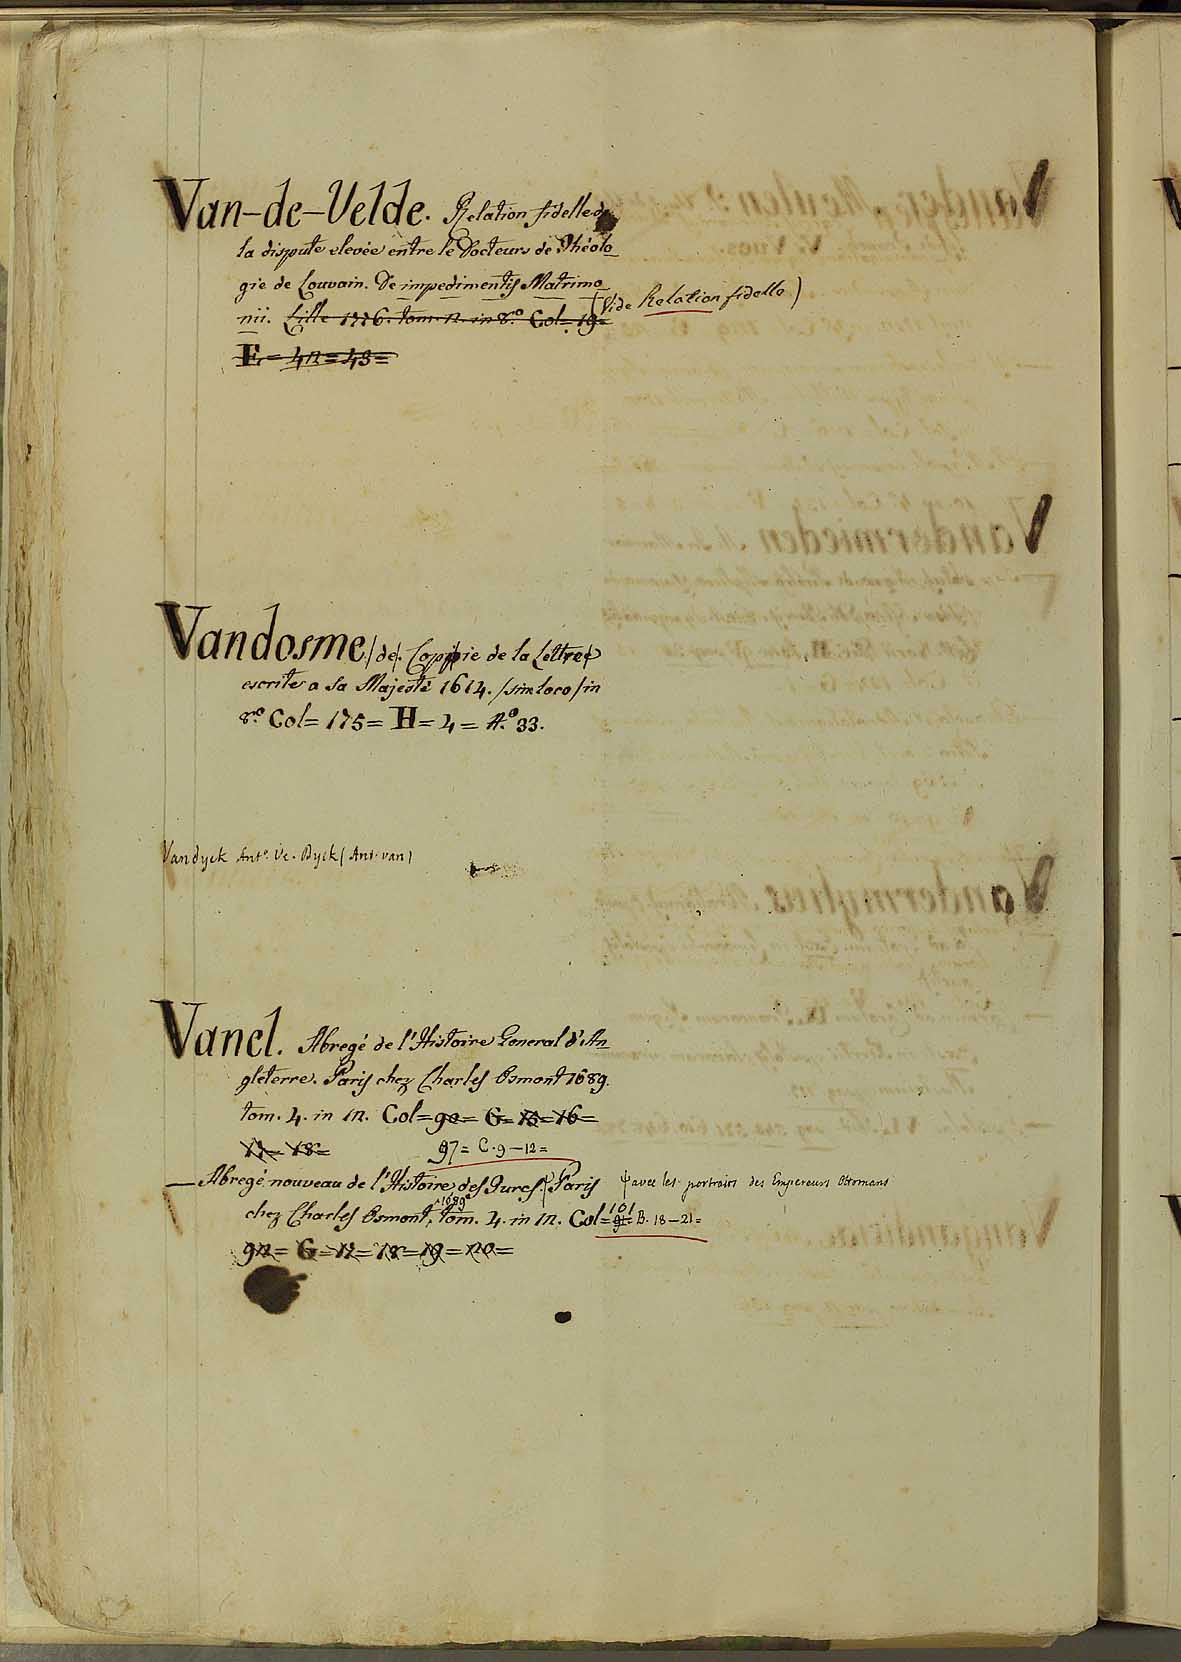 Van-de-Velde. Relation fidelle de
la dispute elevée entre le Docteurs de Théolo
gie de Louvain. De impedimentis Matrimo
(Vide Relation fidelle)
nii. Lille 1776. tom. 12. in 8.º Col=19=
E=42=43=
Vandosme /de/. Coppie de la Lettre
escrite a sa Majesté 1614. /sin loco/ in
8.º Col=175=H=4=A.º 33.
Vandyck Ant.º Ve. Dyck (Ant. van)
Vanel. Abregé de l'Histoire General d'An
gleterre. Paris chez Charles Osmont 1689.
tom. 4. in 12. Col=92=G=15=16=
17=18= 97=C.9-12=
Abregé nouveau de l'Histoire des Turcs Paris avec les portraits des Empereurs Ottomans
1689
chez Charles Osmont, tom. 4. in 12. Col=101=B.18-21=
92=G=17=18=19=20=